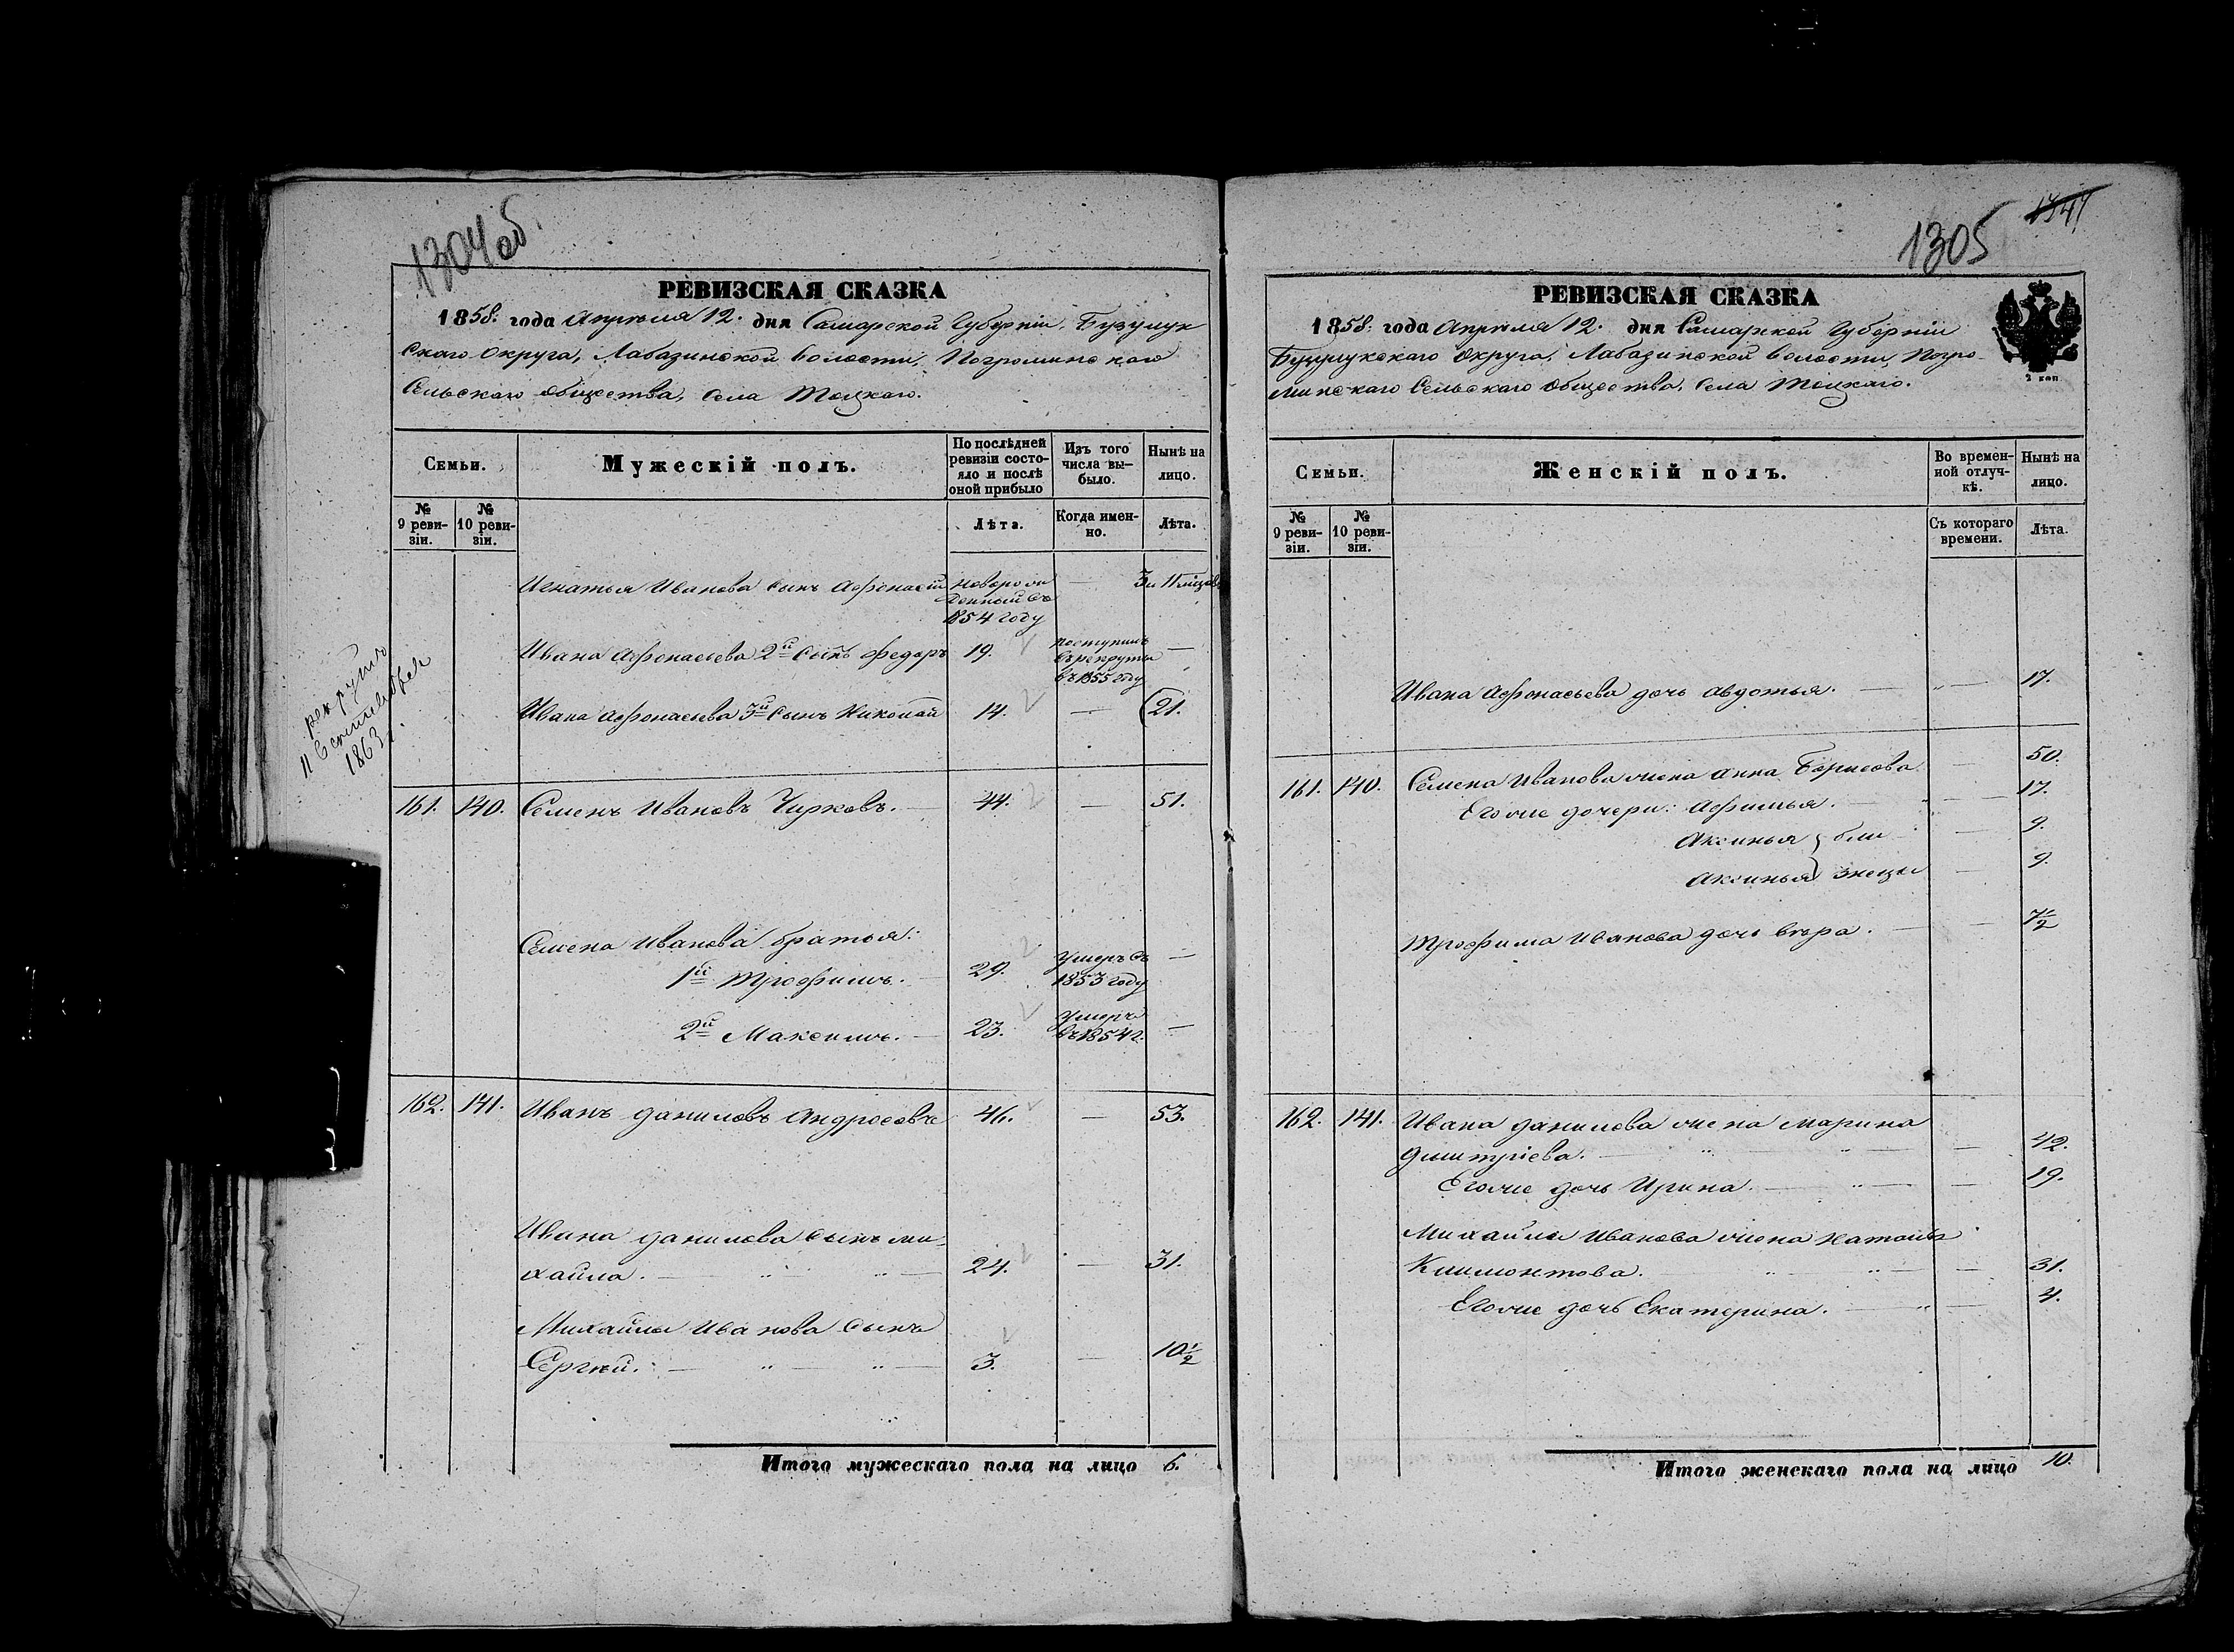 1304об.
РЕВИЗСКАЯ СКАЗКА
1858: года Апрѣля 12. дня Самарской Губерніи, Бузулук
скаго Округа, Лабазинской волости, Погроминскаго
Сельскаго общества, Села Тоцкаго.
Семьи.
Мужескій полъ.
По послѣдней
ревизіи состо-
яло и послѣ
оной прибыло
Изъ того
числа вы-
было.
Нынѣ на
лицо.
№
9 реви-
зіи.
№
10 реви-
зіи.
Лѣта.
Когда имен-
но.
Лѣта.
Игнатья Иванова сынъ Афонасій новорож
денный въ
1854 году — 3 и 11 мѣсяц
Ивана Афонасьева 2й сынъ Федоръ 19. поступилъ
въ рекруты
въ 1855 году —
Ивана Афонасьева 3й сынъ Николай 14. — 21.
рекрутъ
11 Сентября
1863 г.
161. 140. Семенъ Ивановъ Чирковъ. — 44. — 51.
Семена Иванова братья:
1й Трофимъ. — 29. Умеръ въ
1853 году —
2й Максимъ. — 23. Умеръ
въ 1854 г. —
162. 141. Иванъ Даниловъ Андросовъ 46. — 53.
Ивана Данилова сынъ Ми-
хайла. — " " — 24. — 31.
Михайлы Иванова сынъ
Сергѣй. — " " — 3. — 10 1/2
Итого мужескаго пола на лицо 6.
1305
1347
РЕВИЗСКАЯ СКАЗКА
1858: года Апрѣля 12. дня Самарской Губерніи
Бузулукскаго Округа, Лабазинской волости, Погро-
минскаго Сельскаго Общества, Села Тоцкаго.
2 коп
Семьи.
Женскій полъ.
Во времен-
ной отлуч-
кѣ.
Нынѣ на
лицо.
№
9 реви-
зіи.
№
10 реви-
зіи.
Съ котораго
времени.
Лѣта.
Ивана Афонасьева дочь Авдотья. — " — 17.
161. 140. Семена Иванова жена Анна Борисова — 50.
Его же дочери: Афимья. — 17.
Аксинья } бли — 9.
Аксинья } знецы — 9.
Трофима Иванова дочь Вѣра. — — 7 1/2
162. 141. Ивана Данилова жена Марина
Димитріева. — " " — — 42.
Его же дочь Ирина. — " — — 19.
Михайлы Иванова жена Наталья
Климонтова. — " " — — 31.
Его же дочь Екатерина. — " — 4.
Итого женскаго пола на лицо 10.